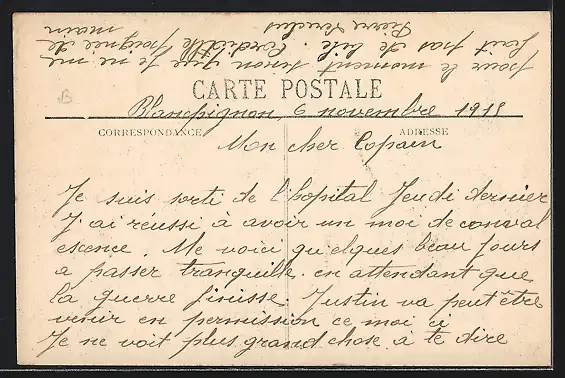 CARTE POSTALE
Blanchpignon, 6 novembre 1918
CORRESPONDANCE
ADRESSE
Mon cher Copain
Je suis sorti de l'hopital Jeudi dernier
J'ai réussi à avoir un moi de conval
escence. Me voici qu'elques beau jours
a passer tranquille. en attendant que
la guerre finisse. Justin va peut être
venir en permission ce moi ci
Je ne voit plus grand chose a te dire
pour le moment sinon que je ne me
fait pas de bile. Cordialle poignée de
main
Pierre